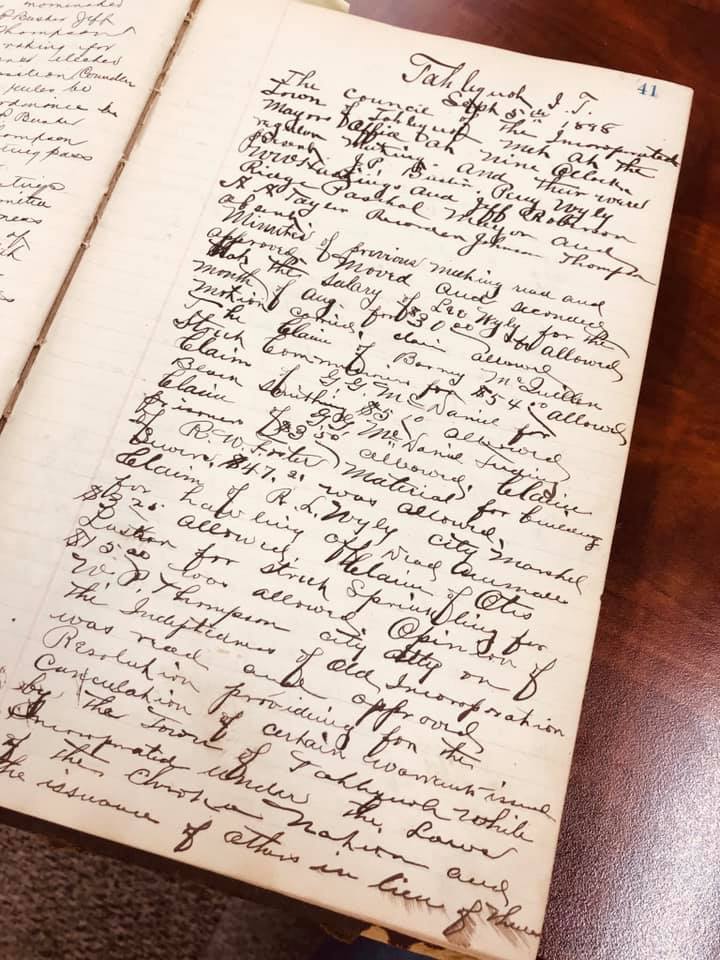 nominated
P Busker Jeff
Thompson
making for
elected
Councilor
rules be
ordinance be
P Busker
Thompson
pass
of
41
Tahlequah I. T.
Sept 5th 1898
The Council of the Incorporated
Town of Tahlequah met at the
Mayors Office at nine Oclock
regular meeting and their were
present J. P. Buster Percy Wyly
W W Hastings and Jeff Robinson
Ridge Paschal Mayor and
A A Taylor Recorder Johnson Thompson
absent
Minutes of previous meeting read and
approved. Moved and seconded
that the salary of Leo Wyly for the
month of Aug. for $30.00 be allowed
Motion carried, claim allowed
The Claim of Barney McQuillen
Street Commissioner for $54.00 allowed
Claim of G. G. McDaniel for
allowed
Claim of G. G. McDaniel
prisoners $3.50 allowed. Claim
of R. W. Foster Material for building
sewers. $47. was allowed.
Claim of R. L. Wyly city Marshel
for hawling of Dead animals
$3.25 allowed. Claim of Otis
for Street Sprinkling for
$15.00 was allowed Opinion of
W. P. Thompson city atty on
the Indeptedness of old Incorporation
was read and approved
Resolution providing for the
Canculation of certain warrants issued
by the Town of Tahlequah while
Incorporated under the Laws
of the Cherokee Nation and
the issuance of others in lieu of